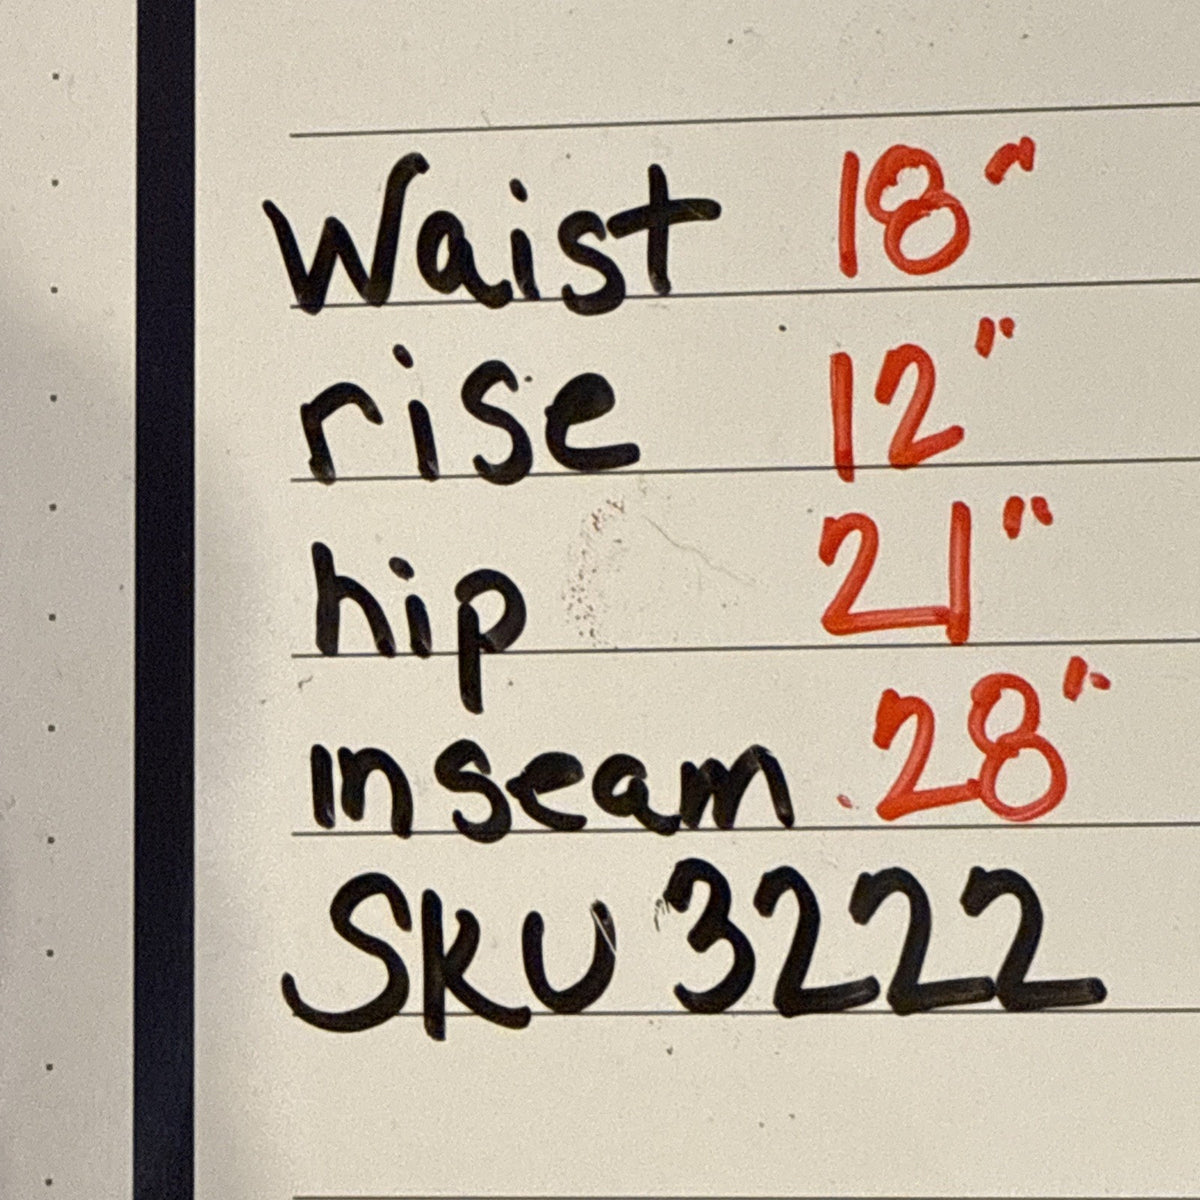 Waist 18"
rise 12"
hip 21"
inseam 28"
SKU 3222